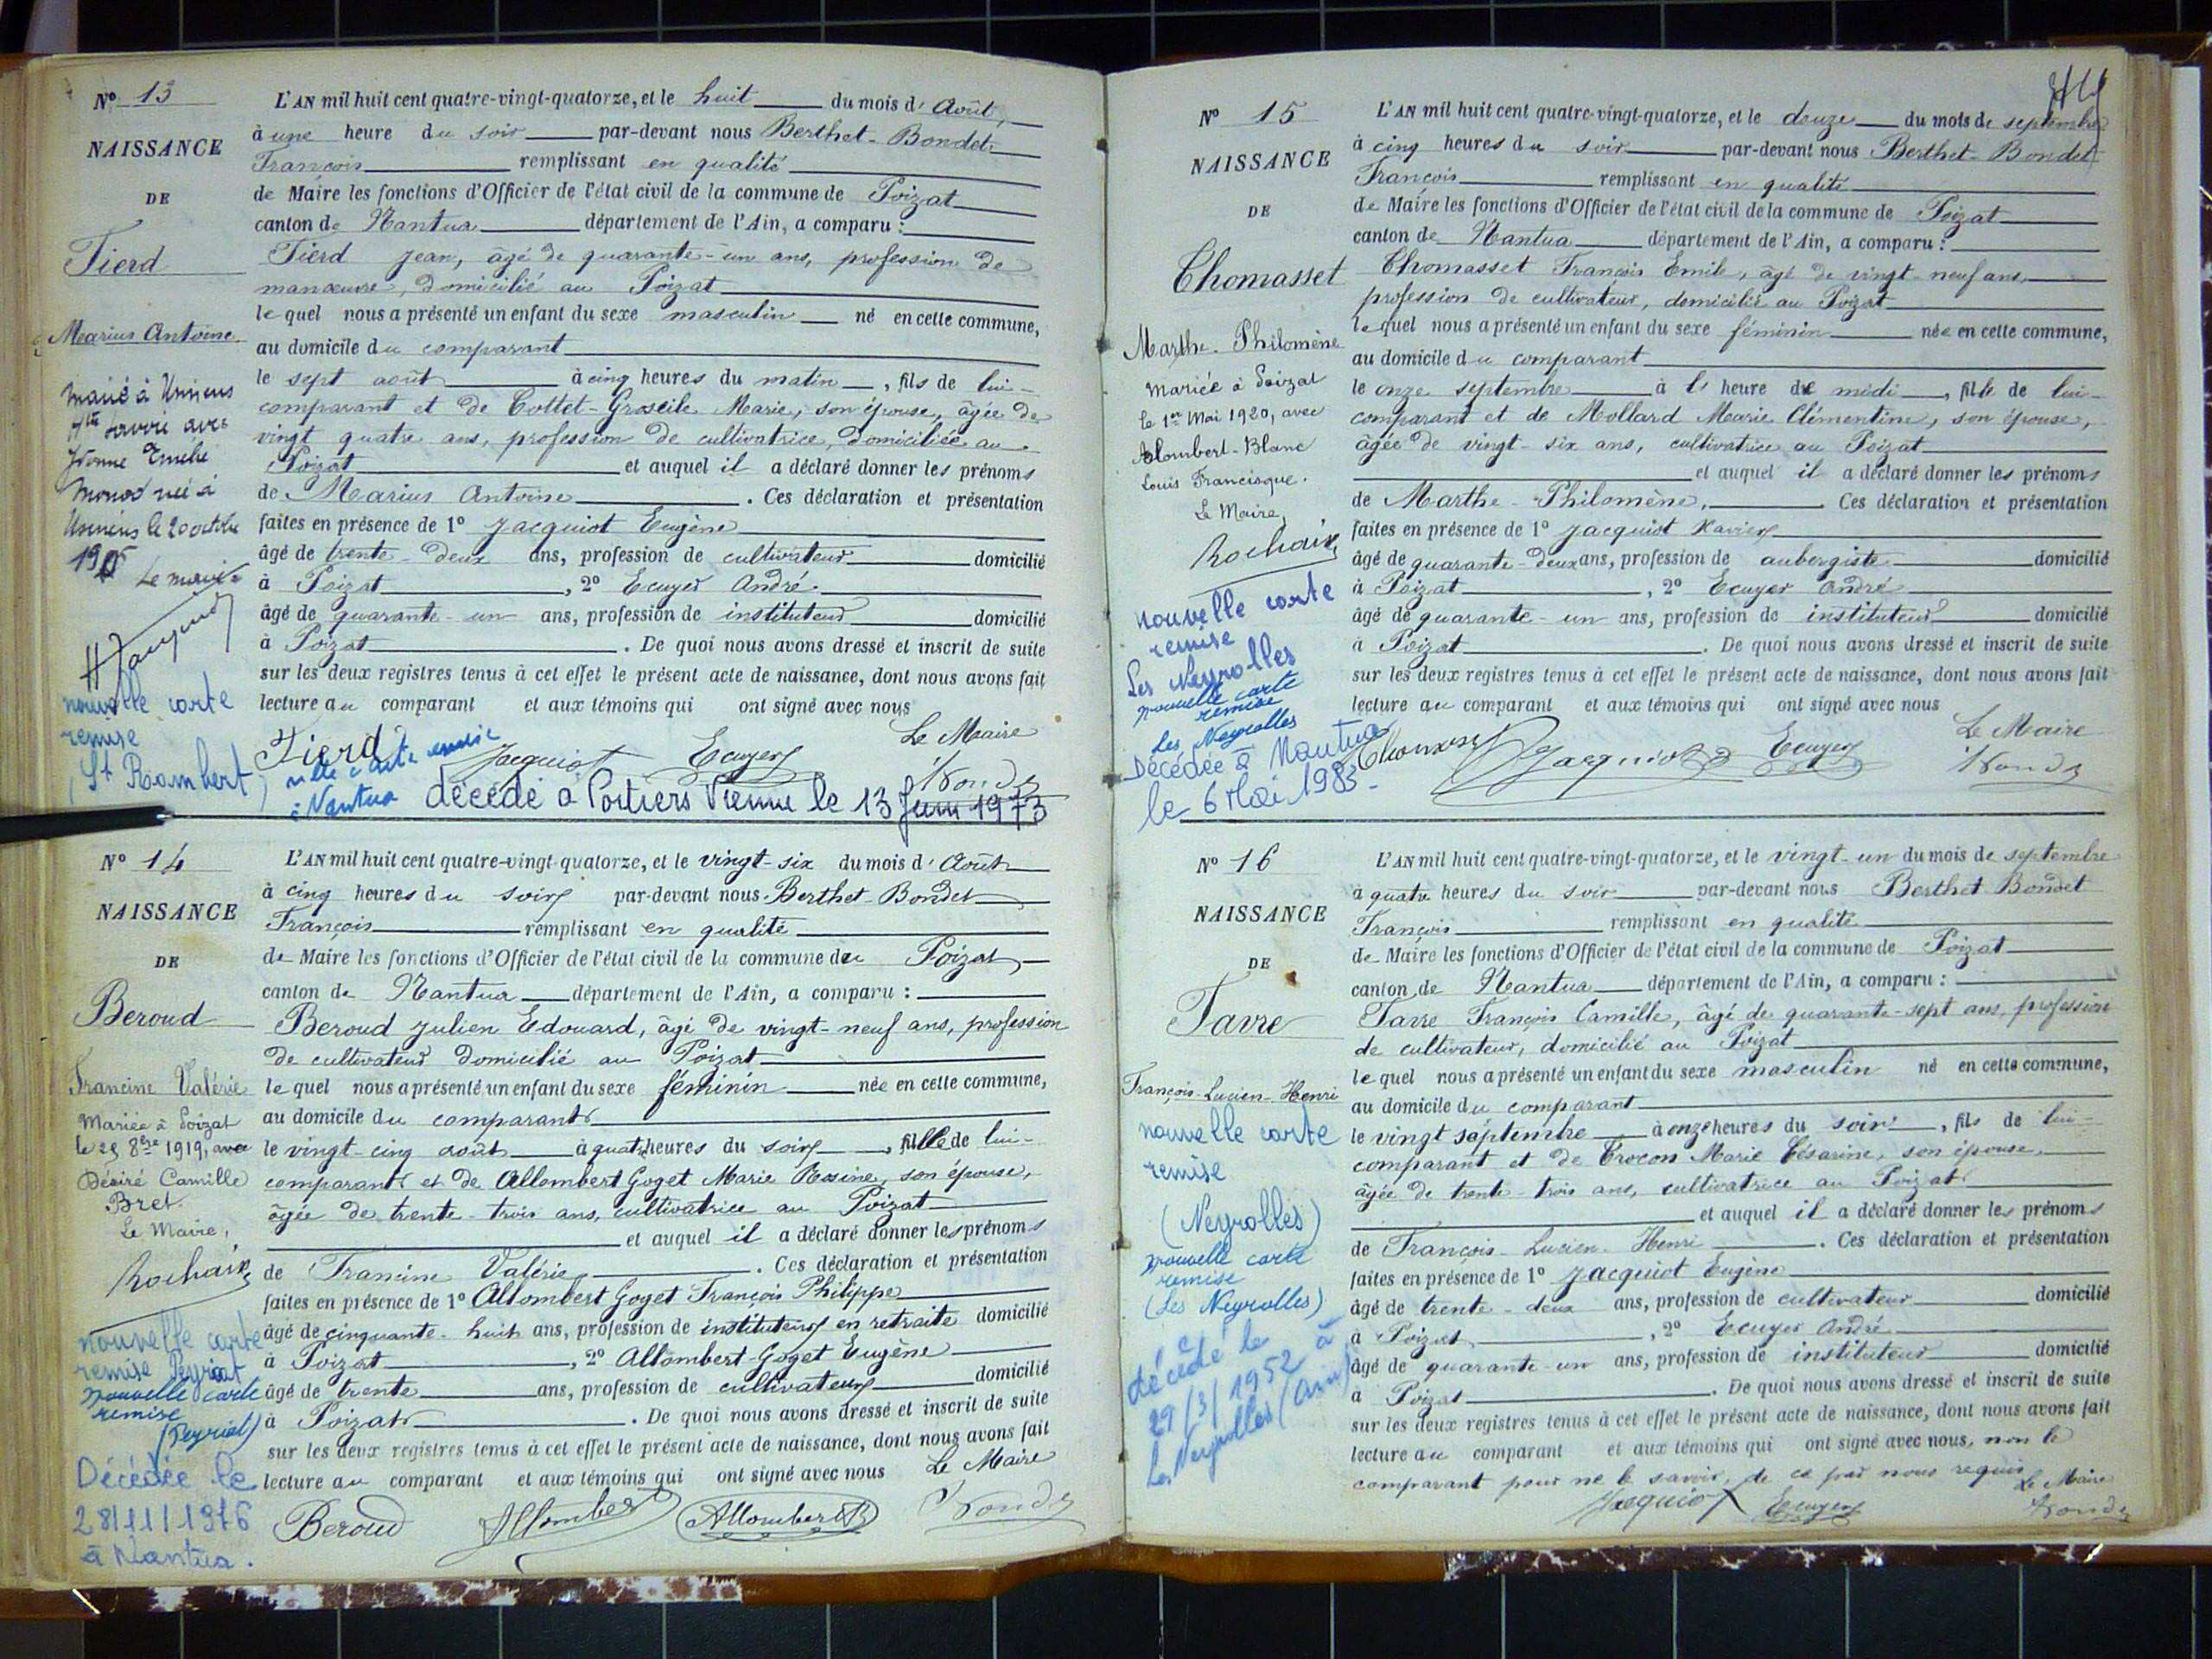 N° 13
NAISSANCE
DE
Tierd
Marius Antoine
marié à
Hte Savoie avec
Yvonne Emélie
Monod née à
le 20 octobre
Le maire
nouvelle carte
remise
(St Rambert)
L'AN mil huit cent quatre-vingt-quatorze, et le huit du mois d' Août,
à une heure du soir par-devant nous Berthet-Bondet
François remplissant en qualité
de Maire les fonctions d'Officier de l'état civil de la commune de Poizat
canton de Nantua département de l'Ain, a comparu :
Tierd Jean, âgé de quarante-un ans, profession de
manœuvre, domicilié au Poizat
lequel nous a présenté un enfant du sexe masculin né en cette commune,
au domicile du comparant
le sept août à cinq heures du matin, fils de lui-
comparant et de Cottet-Groseile Marie, son épouse, âgée de
vingt quatre ans, profession de cultivatrice, domiciliée au
Poizat et auquel il a déclaré donner les prénoms
de Marius Antoine. Ces déclaration et présentation
faites en présence de 1° Jacquiot Eugène
âgé de trente-deux ans, profession de cultivateur domicilié
à Poizat, 2° Ecuyer André
âgé de quarante-un ans, profession de instituteur domicilié
à Poizat. De quoi nous avons dressé et inscrit de suite
sur les deux registres tenus à cet effet le présent acte de naissance, dont nous avons fait
lecture au comparant et aux témoins qui ont signé avec nous
Le Maire
Tierd Jacquiot Ecuyer
nlle carte remise
à Nantua
décédé à Poitiers Vienne le 13 Juin 1973
N° 14
NAISSANCE
DE
Beroud
Francine Valérie
Mariée à Poizat
le 25 8bre 1919, avec
Désiré Camille
Bret.
Le Maire,
Rochaix
nouvelle carte
remise Peyriat
nouvelle carte
remise
(Peyriat)
Décédée le
28/11/1976
à Nantua.
L'AN mil huit cent quatre-vingt-quatorze, et le vingt-six du mois d' Août
à cinq heures du soir par-devant nous Berthet-Bondet
François remplissant en qualité
de Maire les fonctions d'Officier de l'état civil de la commune du Poizat,
canton de Nantua département de l'Ain, a comparu :
Beroud Julien Edouard, âgé de vingt-neuf ans, profession
de cultivateur domicilié au Poizat
lequel nous a présenté un enfant du sexe féminin née en cette commune,
au domicile du comparant
le vingt-cinq août à quatre heures du soir, fille de lui-
comparant et de Allombert Goget Marie Rosine, son épouse,
âgée de trente-trois ans, cultivatrice au Poizat
et auquel il a déclaré donner les prénoms
de Francine Valérie. Ces déclaration et présentation
faites en présence de 1° Allombert Goget François Philippe
âgé de cinquante-huit ans, profession de instituteur en retraite domicilié
à Poizat, 2° Allombert-Goget Eugène
âgé de trente ans, profession de cultivateur domicilié
à Poizat. De quoi nous avons dressé et inscrit de suite
sur les deux registres tenus à cet effet le présent acte de naissance, dont nous avons fait
lecture au comparant et aux témoins qui ont signé avec nous Le Maire
Beroud Allombert Allombert
N° 15
NAISSANCE
DE
Chomasset
Marthe-Philomène
Mariée à Poizat
le 1er Mai 1920, avec
Alombert-Blanc
Louis Francisque.
Le Maire,
Rochaix
nouvelle carte
remise
Les Neyrolles
nouvelle carte
remise
Les Neyrolles
Décédée à Nantua
le 6 Mai 1983-
L'AN mil huit cent quatre-vingt-quatorze, et le douze du mois de septembre
à cinq heures du soir par-devant nous Berthet-Bondet
François remplissant en qualité
de Maire les fonctions d'Officier de l'état civil de la commune de Poizat
canton de Nantua département de l'Ain, a comparu :
Chomasset François Emile, âgé de vingt-neuf ans,
profession de cultivateur, domicilié au Poizat
lequel nous a présenté un enfant du sexe féminin née en cette commune,
au domicile du comparant
le onze septembre à l' heure de midi, fille de lui-
comparant et de Mollard Marie Clémentine, son épouse,
âgée de vingt-six ans, cultivatrice au Poizat
et auquel il a déclaré donner les prénoms
de Marthe-Philomène. Ces déclaration et présentation
faites en présence de 1° Jacquiot Xavier
âgé de quarante-deux ans, profession de aubergiste domicilié
à Poizat, 2° Ecuyer André
âgé de quarante-un ans, profession de instituteur domicilié
à Poizat. De quoi nous avons dressé et inscrit de suite
sur les deux registres tenus à cet effet le présent acte de naissance, dont nous avons fait
lecture au comparant et aux témoins qui ont signé avec nous
Le Maire
Jacquiot Ecuyer
N° 16
NAISSANCE
DE
Favre
François-Lucien-Henri
nouvelle carte
remise
(Neyrolles)
nouvelle carte
remise
(Les Neyrolles)
décédé le
29/3/1952 à
Les Neyrolles (Ain)
L'AN mil huit cent quatre-vingt-quatorze, et le vingt-un du mois de septembre
à quatre heures du soir par-devant nous Berthet Bondet
François remplissant en qualité
de Maire les fonctions d'Officier de l'état civil de la commune de Poizat
canton de Nantua département de l'Ain, a comparu :
Favre François Camille, âgé de quarante-sept ans, profession
de cultivateur, domicilié au Poizat
lequel nous a présenté un enfant du sexe masculin né en cette commune,
au domicile du comparant
le vingt septembre à onze heures du soir, fils de lui-
comparant et de Trocon Marie Césarine, son épouse,
âgée de trente-trois ans, cultivatrice au Poizat
et auquel il a déclaré donner les prénoms
de François-Lucien-Henri. Ces déclaration et présentation
faites en présence de 1° Jacquiot Eugène
âgé de trente-deux ans, profession de cultivateur domicilié
à Poizat, 2° Ecuyer André
âgé de quarante-un ans, profession de instituteur domicilié
à Poizat. De quoi nous avons dressé et inscrit de suite
sur les deux registres tenus à cet effet le présent acte de naissance, dont nous avons fait
lecture au comparant et aux témoins qui ont signé avec nous, non le
comparant pour ne le savoir, de ce par nous requis
Le Maire
Jacquiot Ecuyer